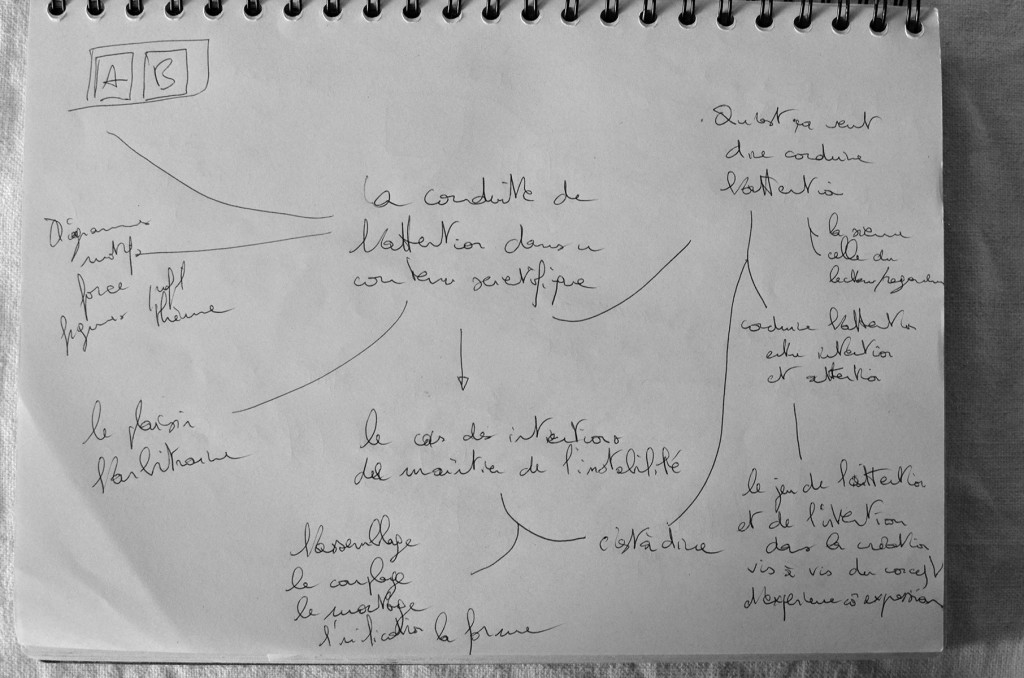 A B
Qu'est ça veut
dire conduire
l'attention
la conduite de
l'attention dans un
contenu scientifique
Diagramme
motifs
force
figures thème
la sienne
celle du
lecteur/regardeur
conduire l'attention
entre intention
et attention
le plaisir
l'arbitraire
le cas des intentions
de maintien de l'instabilité
le jeu de l'attention
et de l'intention
dans la création
vis à vis du concept
d'expérience expression
c'est à dire
l'assemblage
le couplage
le montage
la forme